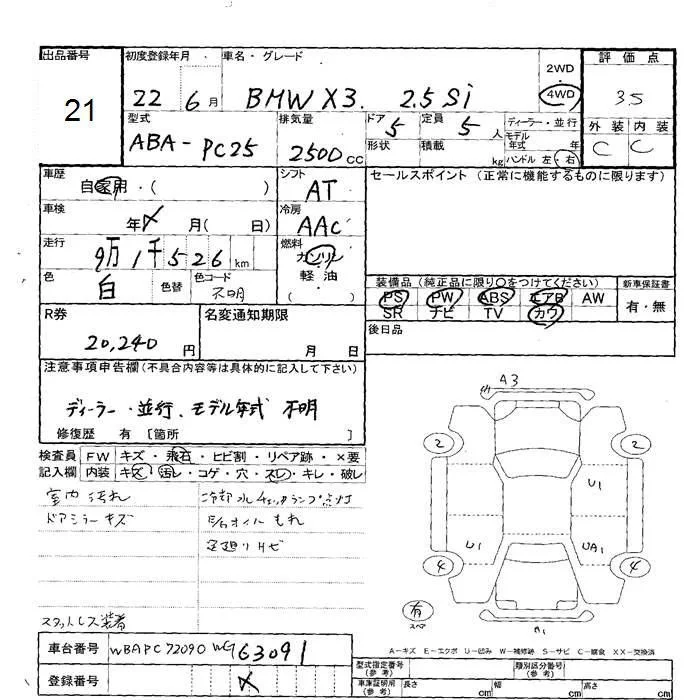 出品番号
21
初度登録年月
22 6月
車名・グレード
BMW X3. 2.5Si
2WD
・
4WD
評価点
3.5
外装 内装
C C
型式
ABA-PC25
排気量
2500cc
ドア 5
形状
定員 5人
積載 kg
ディーラー・並行
モデル年式 年
ハンドル 左・右
車歴
自家用・( )
シフト
AT
セールスポイント(正常に機能するものに限ります)
車検
年 月( 日)
冷房
AAC
走行
9万1千526km
燃料
ガソリン
軽油
( )
色
白
色替
色コード
不明
装備品(純正品に限り○をつけてください)
新車保証書
PS PW ABS エアB AW
SR ナビ TV カワ
有・無
R券
20,240円
名変通知期限
月 日
後日品
注意事項申告欄(不具合内容等は具体的に記入して下さい)
ディーラー・並行、モデル年式 不明
修復歴 有 [箇所 ]
検査員記入欄
FW キズ・飛石・ヒビ割・リペア跡・×要
内装 キズ・汚レ・コゲ・穴・スレ・キレ・破レ
室内汚れ
冷却水チェックランプ点灯
ドアミラーキズ
E/gオイルもれ
足廻りサビ
スタットレス装着
A3
2 2
U1
U1 UA1
4 4
有
スペア
A1
A-キズ E-エクボ U-凹み W-補修跡 S-サビ C-腐食 XX-交換済
車台番号
WBAPC72090WG63091
登録番号
型式指定番号(参考)
類別区分番号(参考)
車庫証明用(参考)
長さ cm
幅 cm
高さ cm